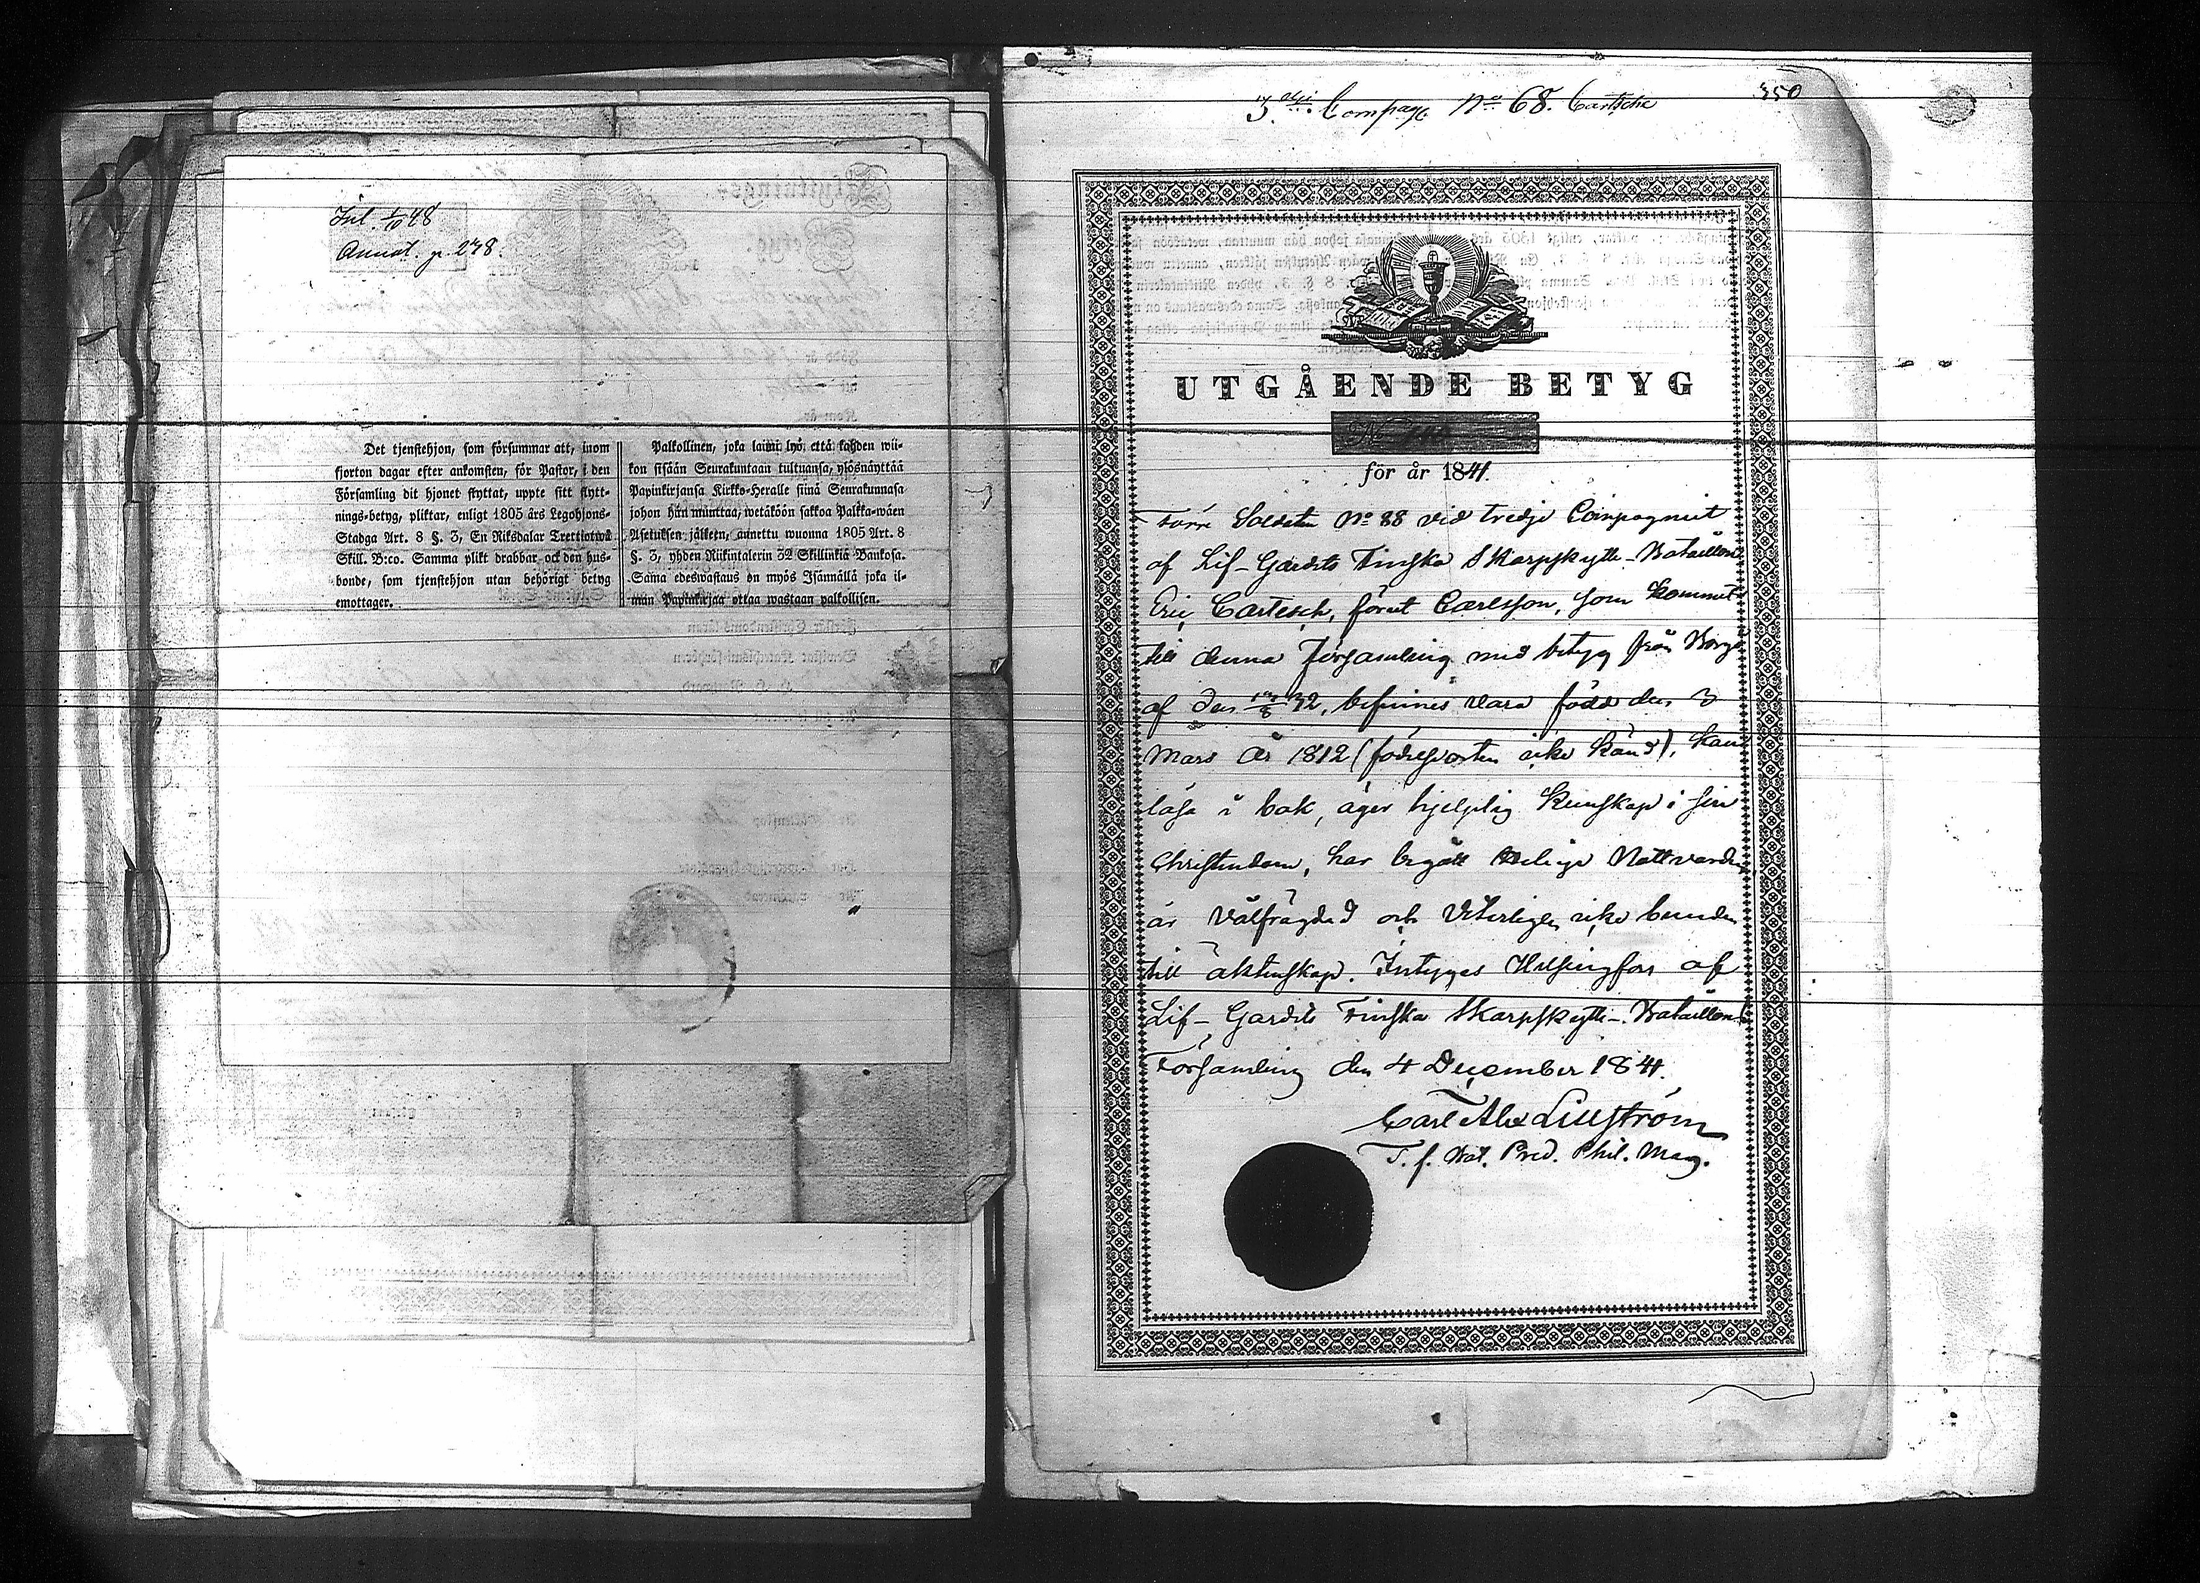 Inl. 1/6 48
Annot. p. 278.
Det tjenstehjon, som försummar att, inom
fjorton dagar efter ankomsten, för Pastor, i den
Församling dit hjonet flyttat, uppte sitt flytt-
nings-betyg, pliktar, enligt 1805 års Legohjons-
Stadga Art. 8 §. 3, En Riksdalar Trettiotwå
Skill. B:co. Samma plikt drabbar ock den hus-
bonde, som tjenstehjon utan behörigt betyg
emottager.
Palkollinen, joka laimi lyö, että kahden wii-
kon sisään Seurakuntaan tultuansa, ylösnäyttää
Papinkirjansa Kirkko-Heralle siinä Seurakunnasa
johon hän muuttaa, wetäköön sakkoa Palkka-wäen
Asetuksen jälkeen, annettu wuonna 1805 Art. 8
§. 3, yhden Riikintalerin 32 Skillinkiä Bankosa.
Sama edeswastaus on myös Isännällä joka il-
man Papinkirjaa ottaa wastaan palkollisen.
350
3dje Compagn No 68. Cartsche
UTGÅENDE BETYG
No
för år 1841.
Förre Soldaten No 88 vid tredje Compagniet
af Lif-Gardets Finska Skarpskytte-Bataillon
Eric Cartesch, förut Carlsson, som kommit
till denna Församling med betyg från Borgå
af den 32, befinnes vara född den 3
Mars år 1812 (födelseorten icke känd), kan
läsa i bok, äger hjelplig kunskap i sin
Christendom, har begått Heliga Nattvarden,
är välfrägdad och veterligen icke bunden
till äktenskap. Intygas Helsingfors af
Lif-Gardets Finska Skarpskytte-Bataillons
Församling den 4 December 1841.
Carl Alex Lillström
T. f. Bat. Pred. Phil. Mag.